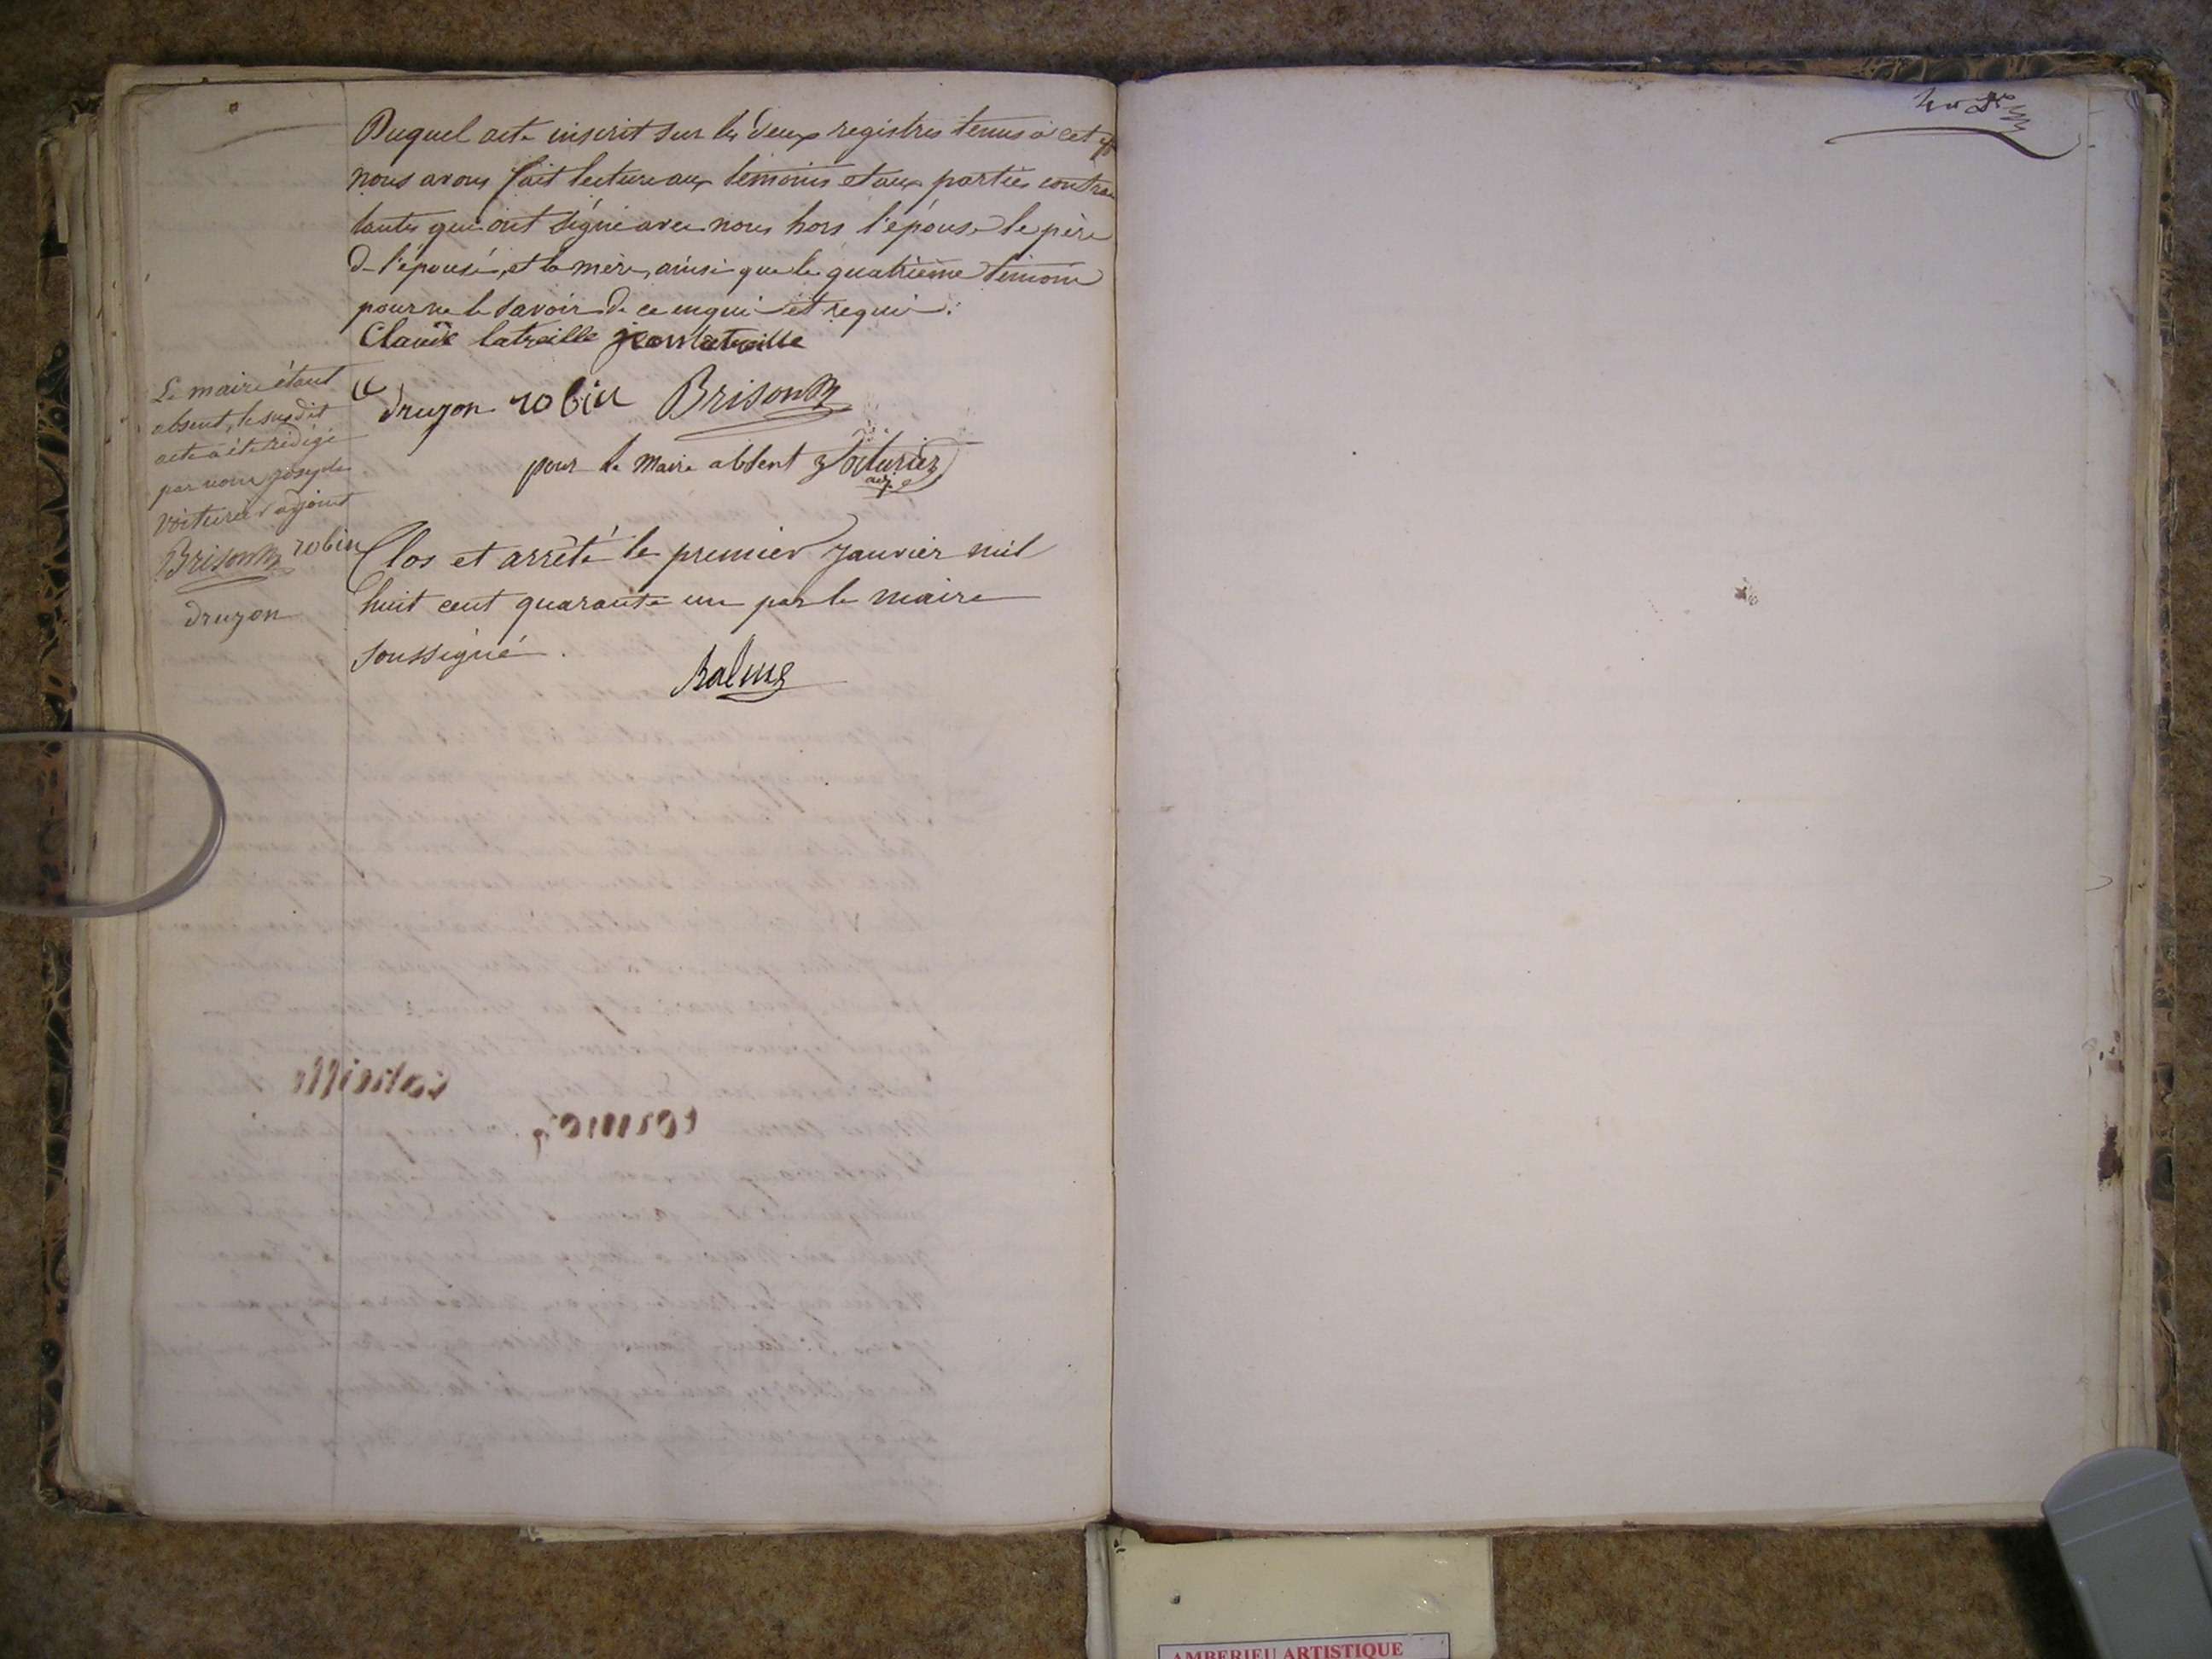 Duquel acte inscrit sur les deux registres tenus à cet
nous avons fait lecture aux témoins et aux parties contrac
tantes qui ont signé avec nous hors l'épouse le père
de l'épouse, et la mère, ainsi que le quatrième témoin
pour ne le savoir de ce enqui et requis.
Claude latreille jean latreille
druzon robin Brison
pour le maire absent Voiturier
adj.
Le maire étant
absent, le susdit
acte a été rédigé
par nous joseph
voiturier adjoint
Brison robin
druzon
Clos et arrêté le premier Janvier mil
huit cent quarante un par le maire
soussigné.
Balme
AMBERIEU ARTISTIQUE